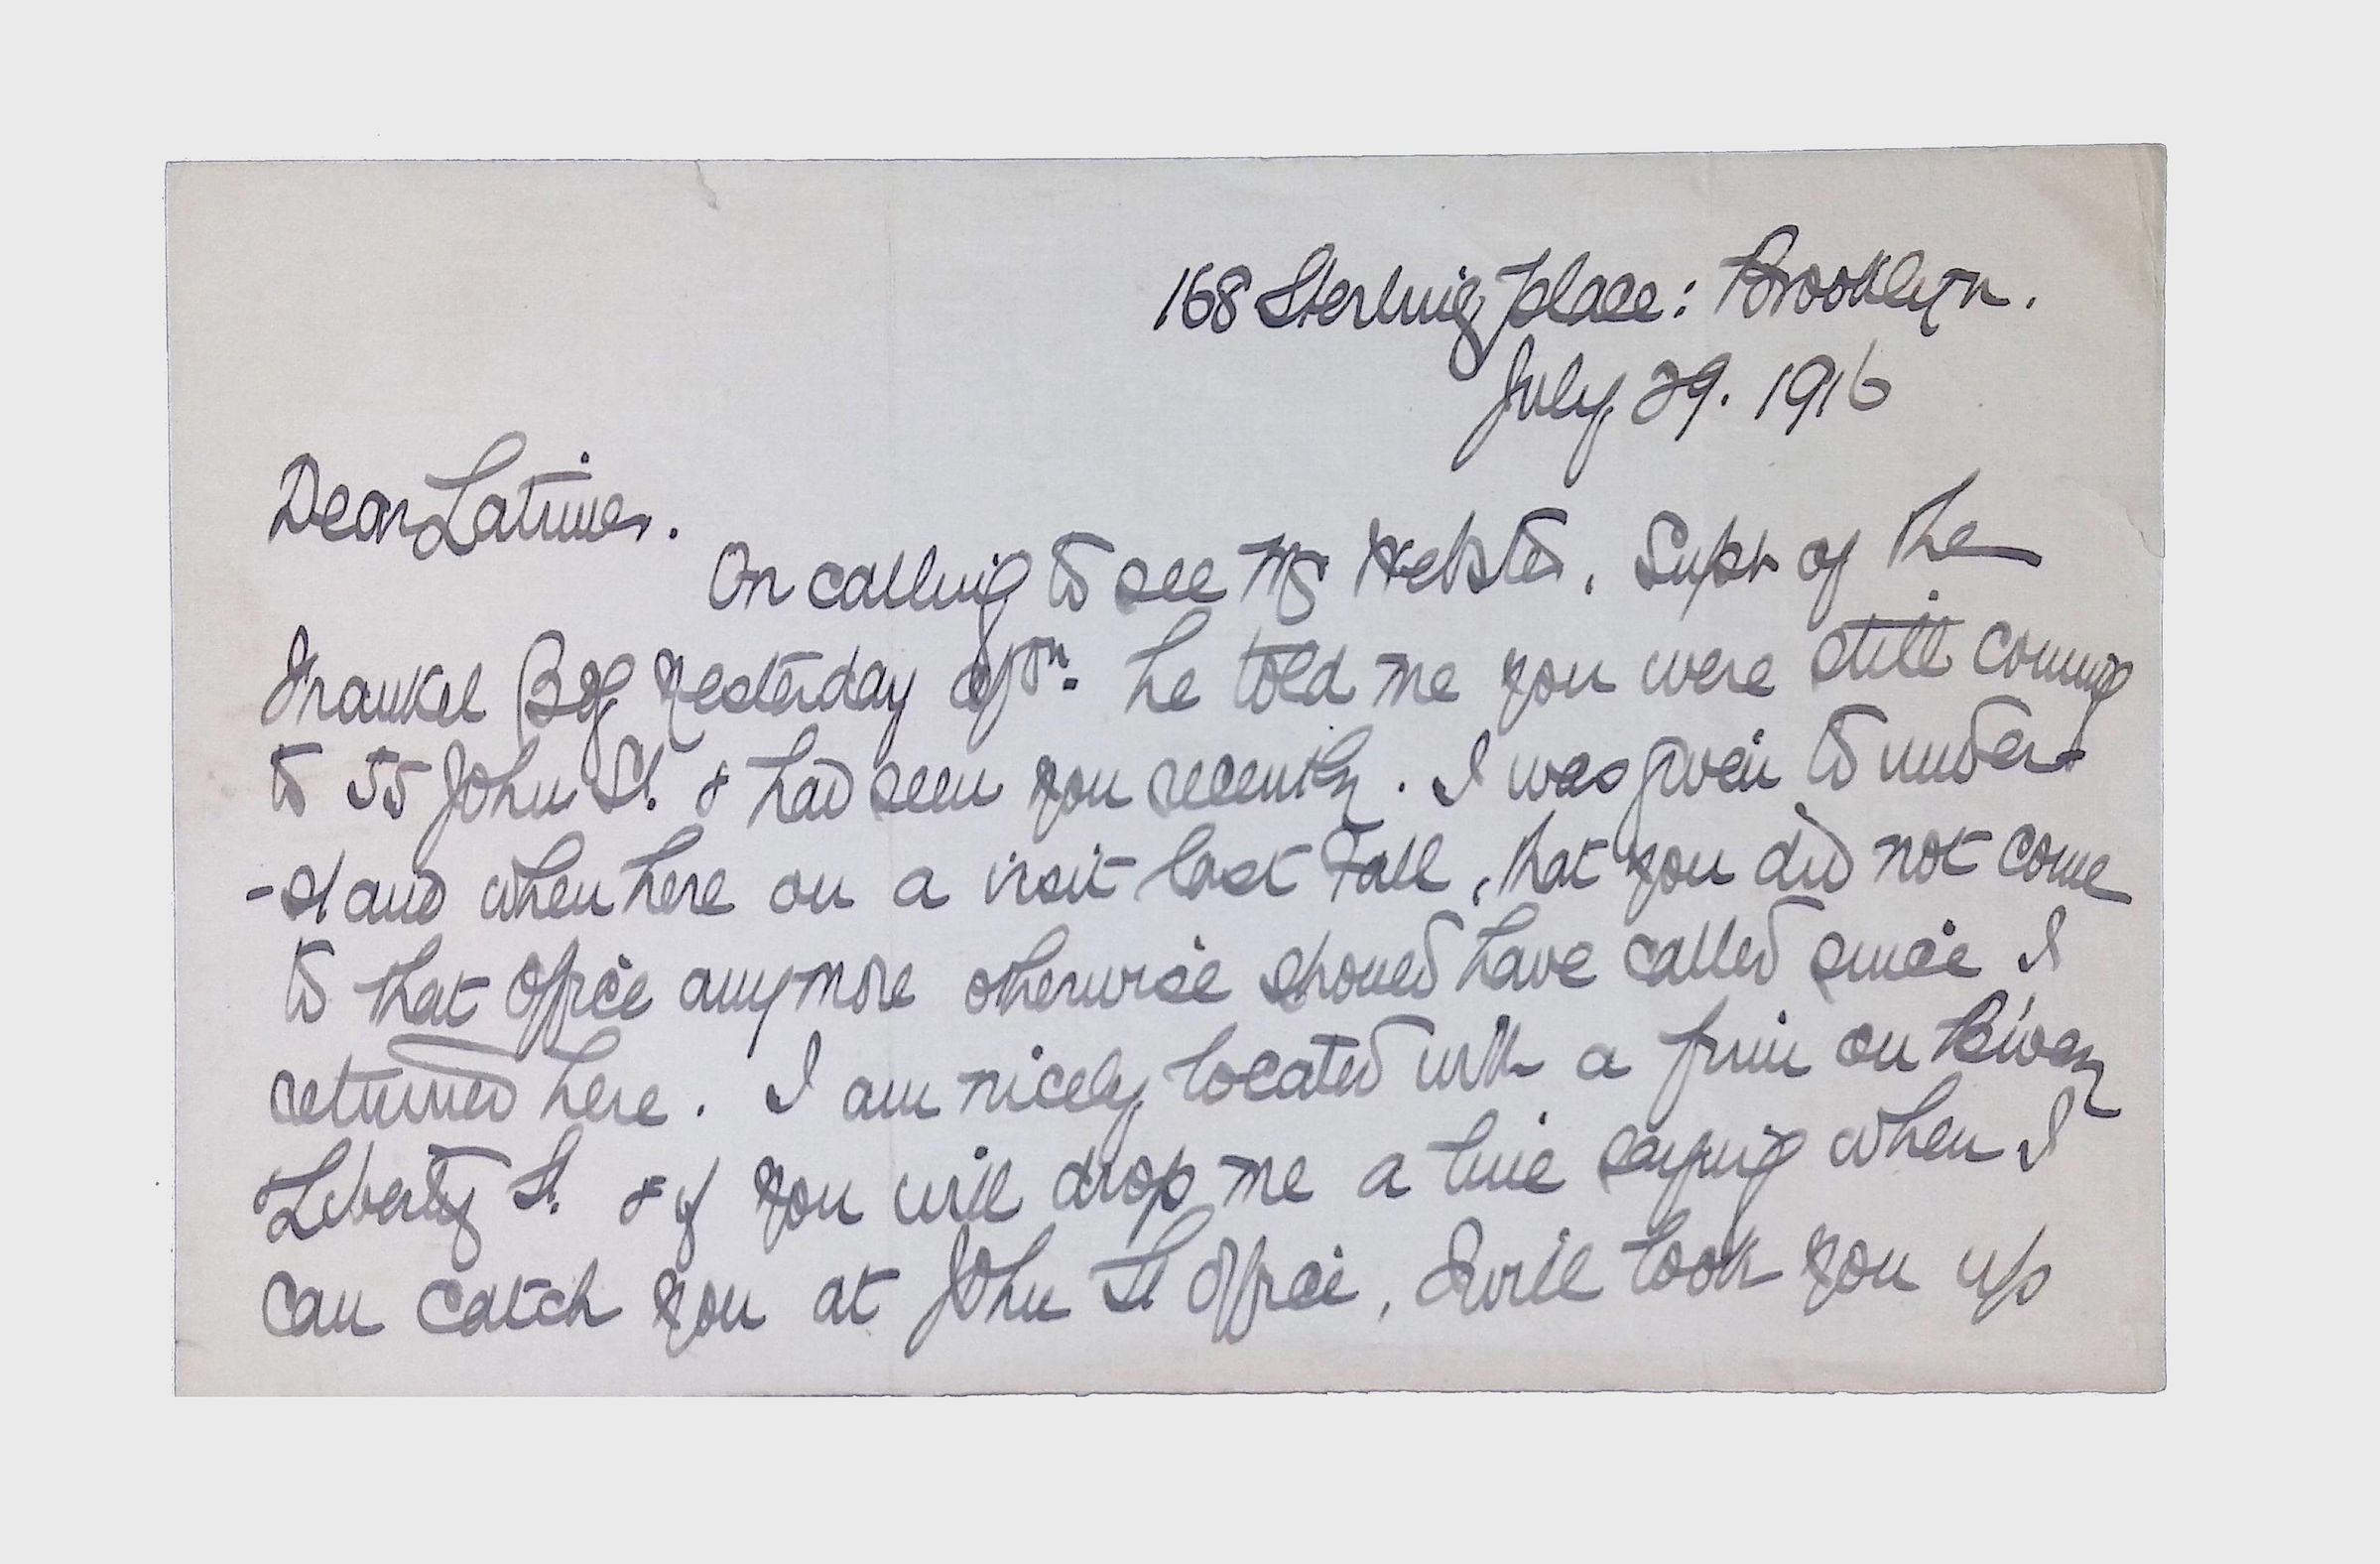 168 Sterling Place: Brooklyn.
July 29. 1916
Dear Latimer.
On calling to see Mr Webster, Supt of the
Frankel Bdg yesterday aftn. he told me you were still coming
to 55 John St. & had seen you recently. I was given to under
-stand when here on a visit last Fall, that you did not come
to that office anymore otherwise should have called since I
returned here. I am nicely located with a firm on B'way
& Liberty St. & if you will drop me a line saying when I
can catch you at John St office, I will look you up